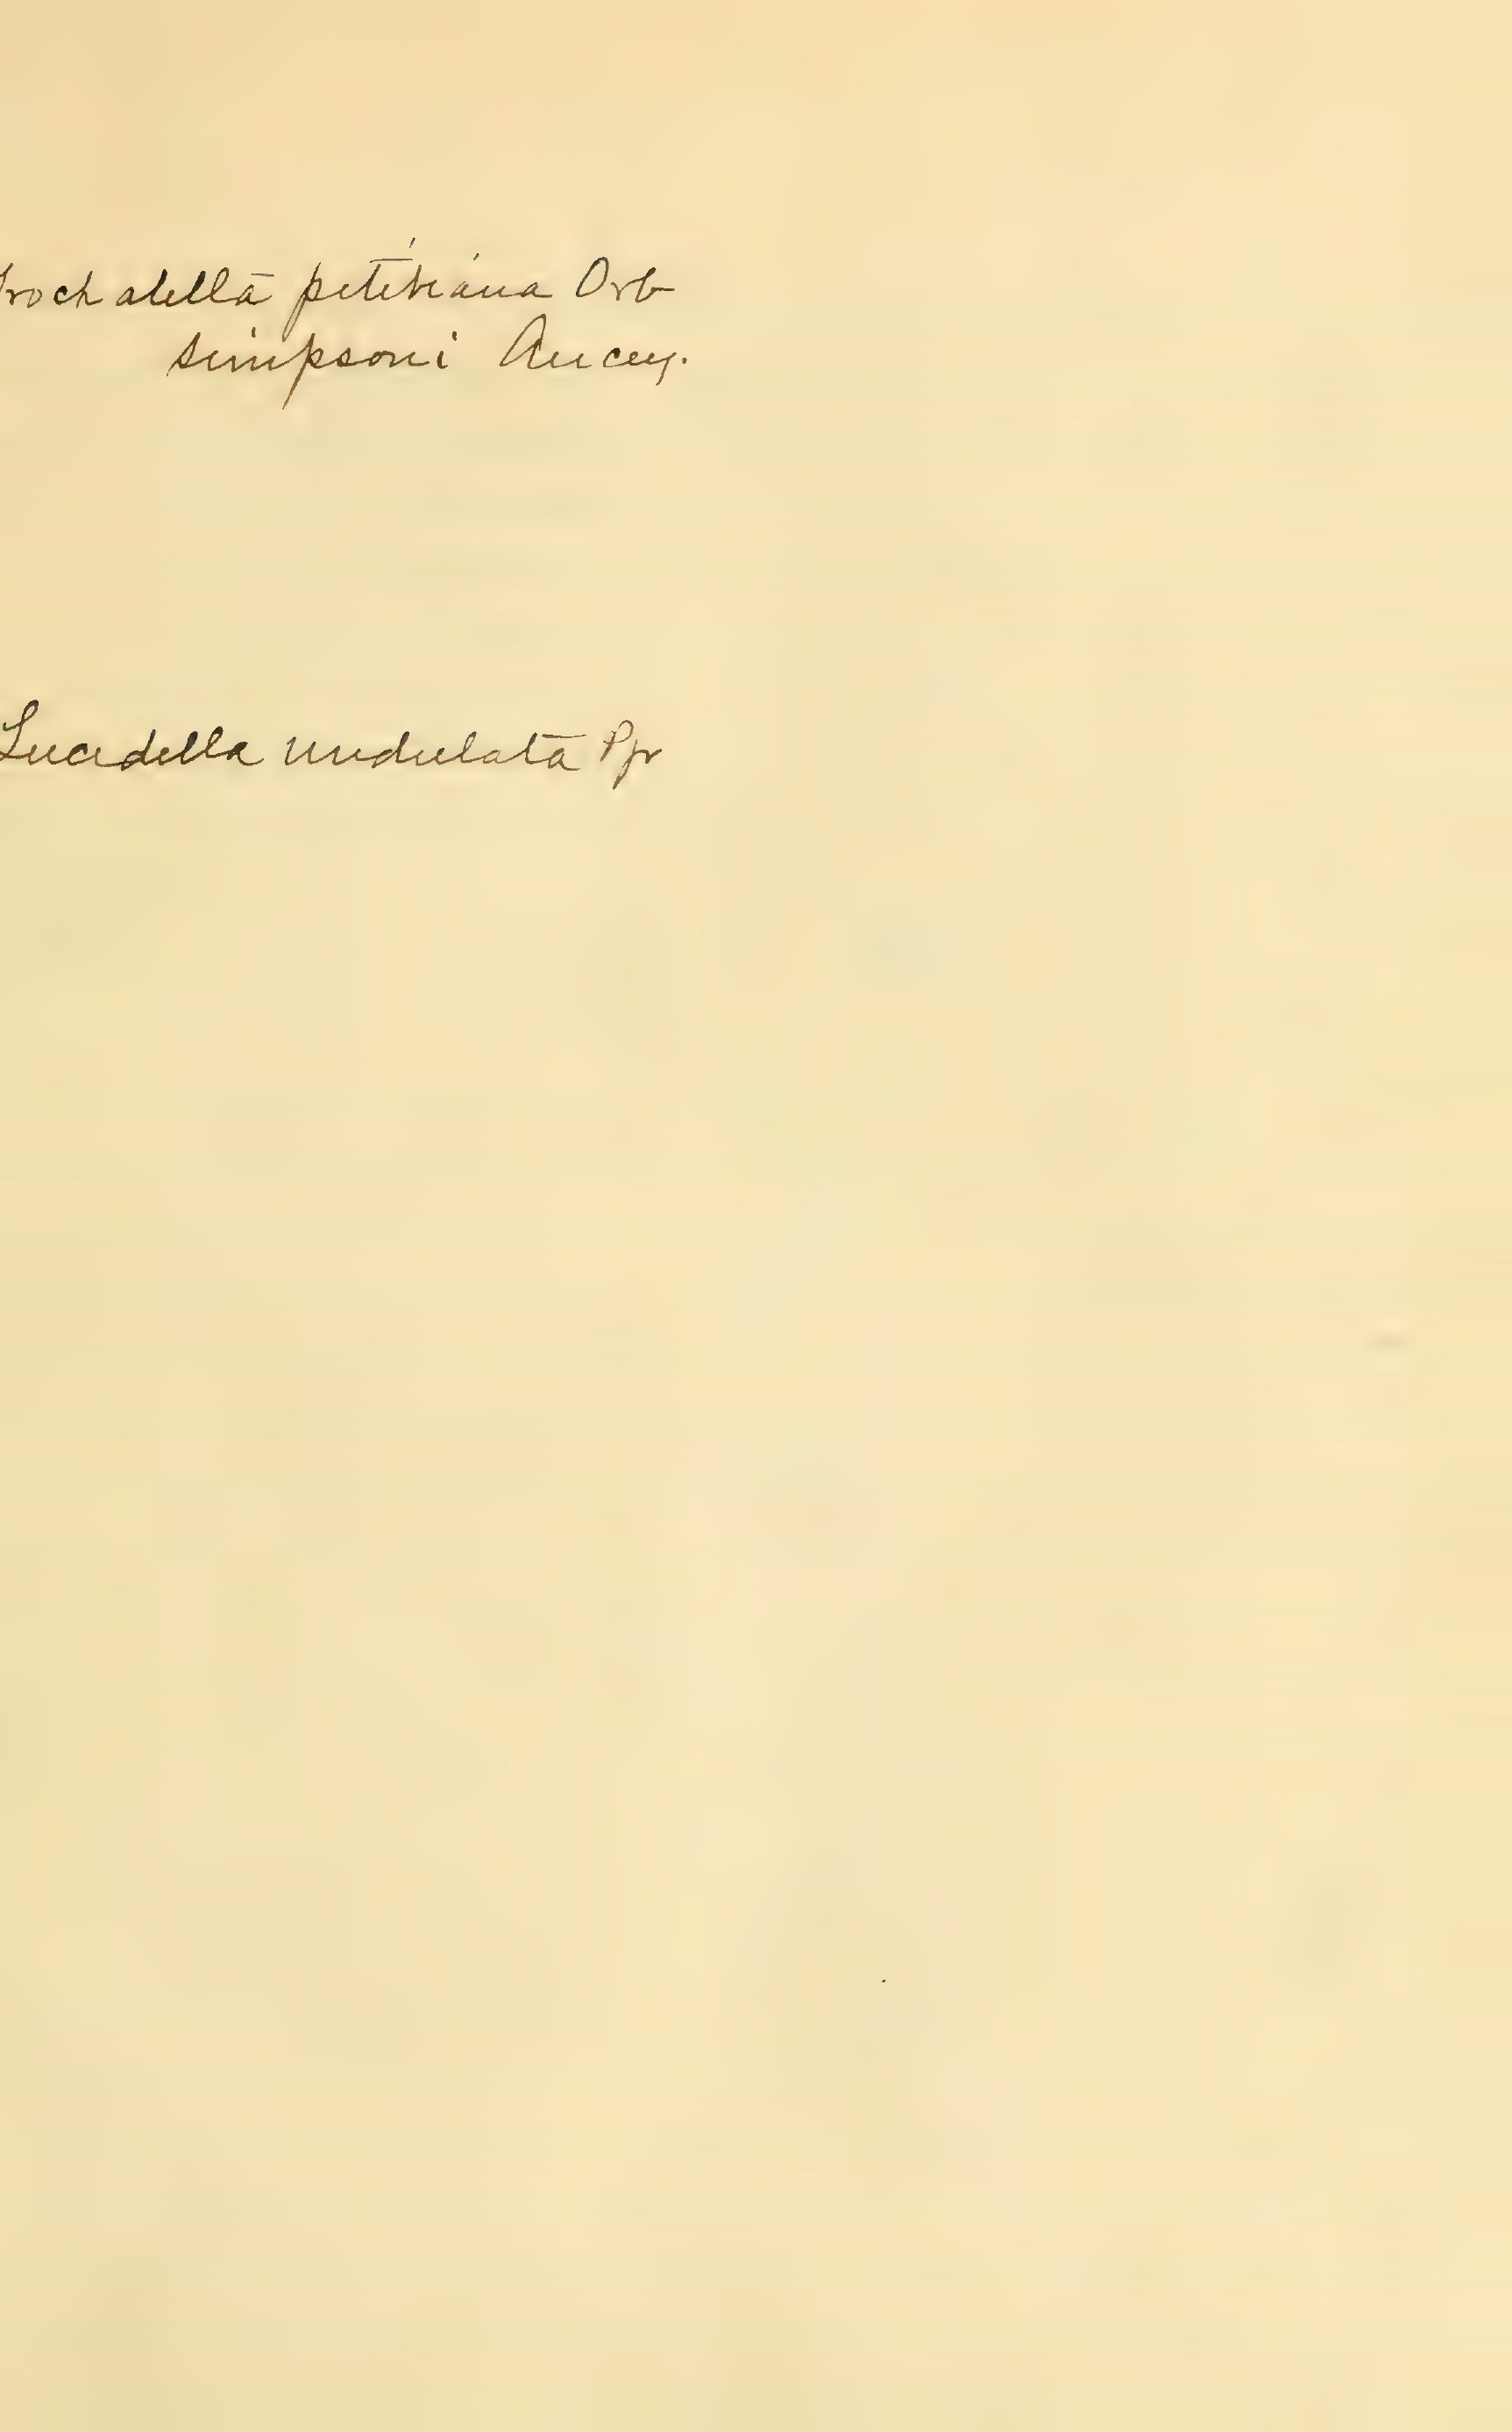 Trochatella petitiana Orb
simpsoni Ancey.
Lucidella undulata Pfr